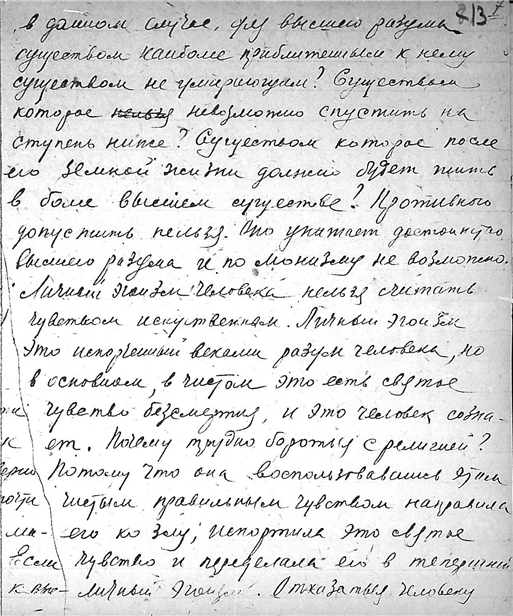 213
в данном случае, для высшего разума
существом наиболее приближенным к нему
существом не умирающим? Существом
которое нельзя невозможно спустить на
ступень ниже? Существом которое после
его земной жизни должно будет жить
в более высшем существе? Противного
допустить нельзя. Это унижает достоинство
высшего разума и по монизму не возможно.
Личный эгоизм человека нельзя считать
чувством искуственным. Личный эгоизм
это испорченный веками разум человека, но
в основном, в чистом это есть святое
чувство безсмертия, и это человек созна-
к ет. Почему трудно бороться с религией?
Потому что она воспользовавшись этим
почти чистым правильным чувством направила
ма- его ко злу, испортила это святое
Если чувство и переделала его в теперешний
личный эгоизм. Отказаться человеку